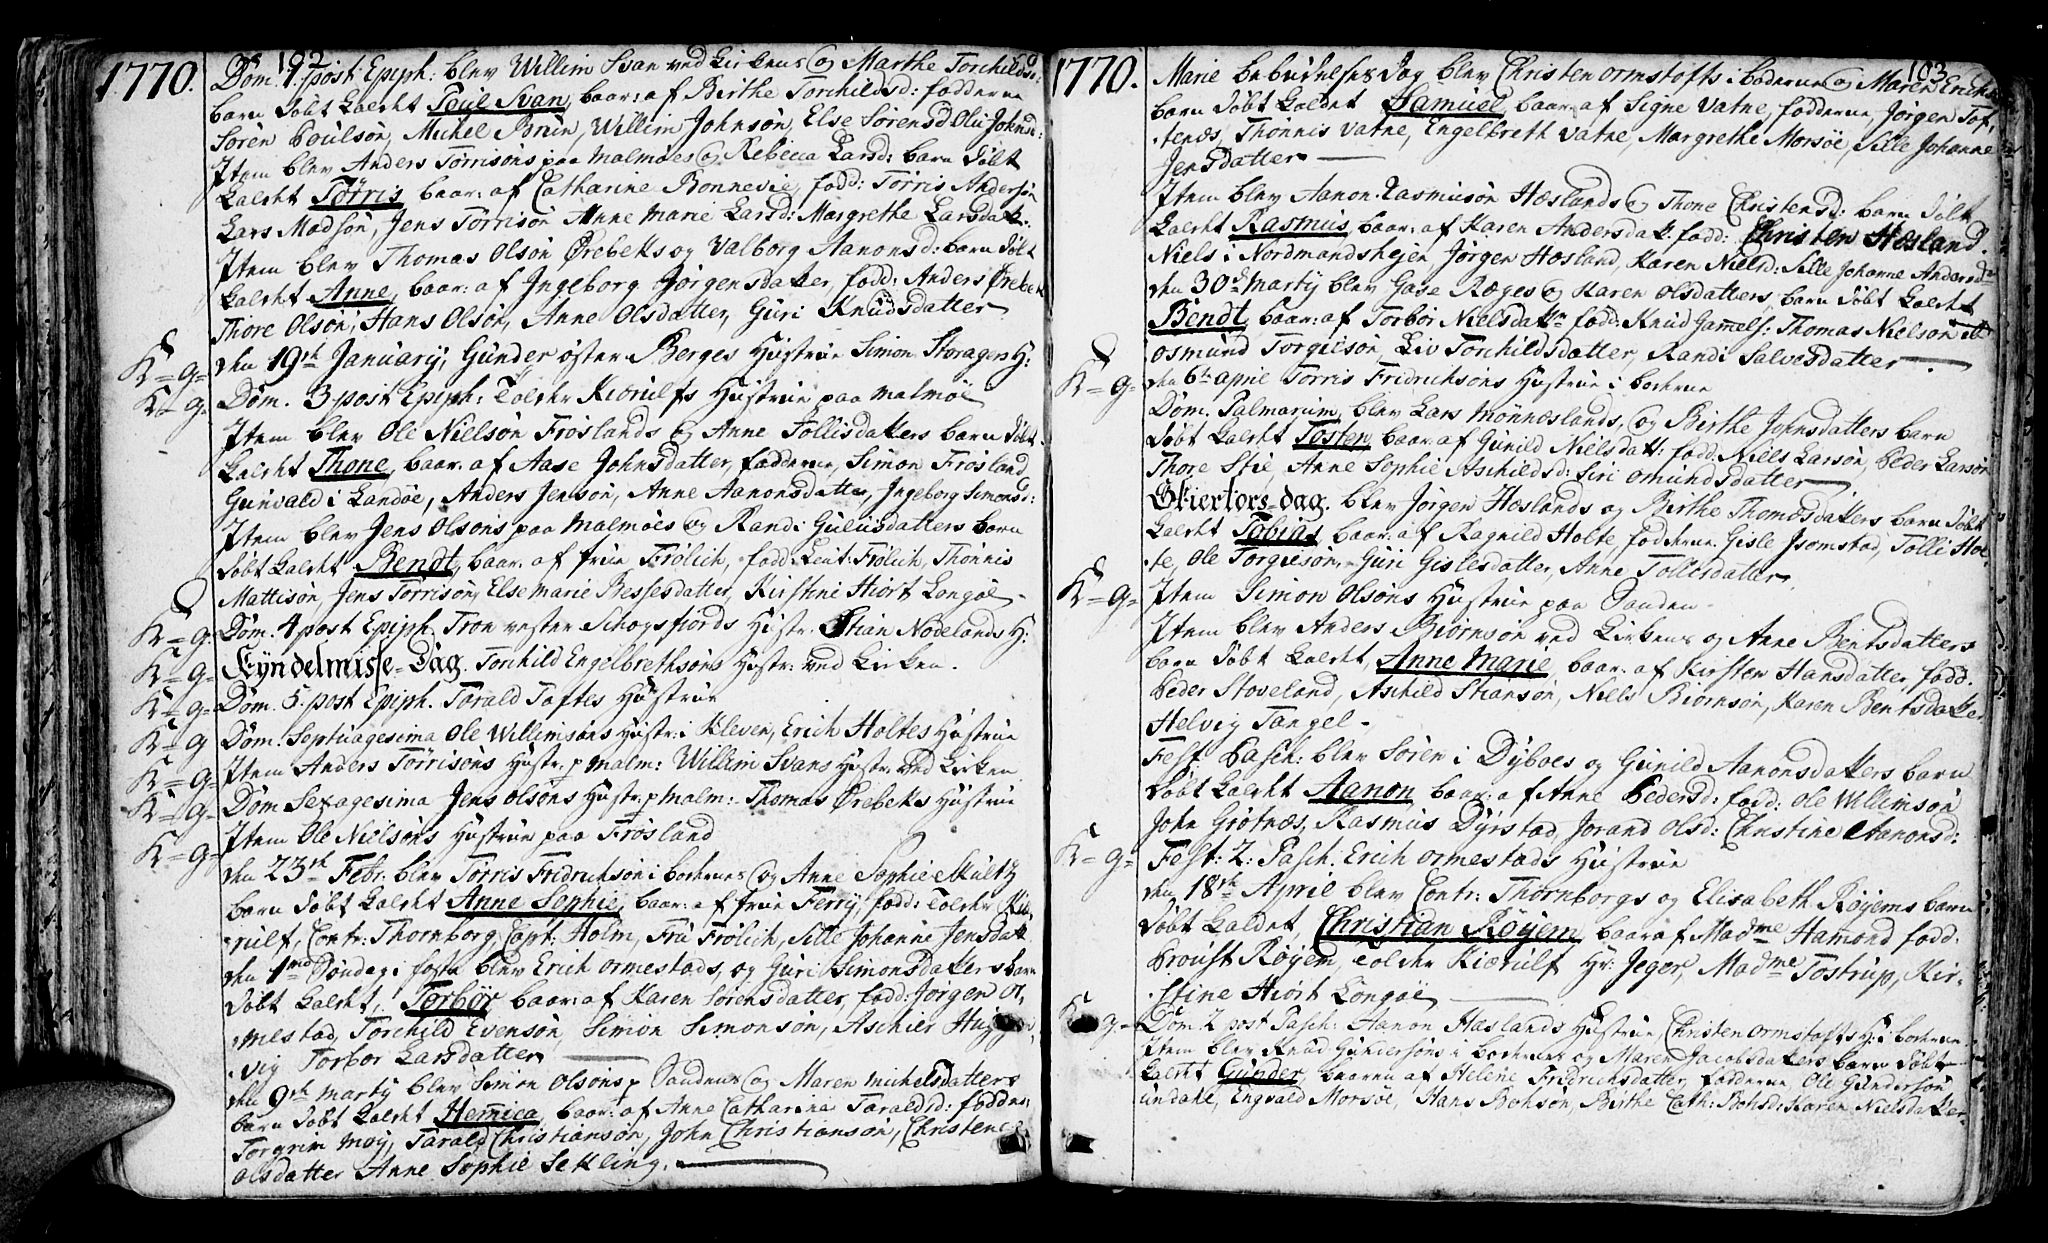 102
1770.
Dom. 1. post Epiph: blev Willim Svan ved Kirkens og Marthe Torchildsd:
barn döbt kaldt Poul Svan, baar: af Birthe Torchildsd: fadderne
Sören Poulsön, Michel Bruun, Willim Johnsön, Else Sörensd Oli Johnsd:
Item blev Anders Törrisöns paa Malmöes og Rebecca Larsd: barn döbt
kaldt Törris, baar: af Catharine Bonnevie, fadd: Törris Andersön
Lars Madsön, Jens Törrisön Anne Marie Larsd: Margrethe Larsdatt.
Item blev Thomas Olsön Örebeks og Valborg Aanonsd: barn döbt
kaldt Anne, baar: af Ingeborg Jörgensdatter, fadd: Anders Örebek
Thore Olsön, Hans Olsön, Anne Olsdatter, Guri Knudsdatter
K=g= den 19de January, Gunder öster Berges Hustrue Simon Storagers H:
K=g= Dom. 3 post Epiph: Tolder Kierulfs Hustrue paa Malmöe
Item blev Ole Nielsön Fröslands og Anne Tollisdatters barn döbt
kaldt Thone, baar: af Aase Johnsdatter, fadderne, Simon Frösland
Gunvald i Landöe, Anders Jensön, Anne Aanonsdatter, Ingeborg Simonsd:
Item blev Jens Olsöns paa Malmöes og Randi Gulusdatters barn
döbt kaldt Bendt, baar: af frue Frölich, fadd Leut: Frölich, Thonnis
Mattisön, Jens Törrisön, Else Marie Bessesdatter, Kirstine Hiort Longöe
K=g= Dom. 4 post Epiph. Tron vester Schogsfiords Hustr. Stian Nödelands H:
K=g= Kyndelmisse-Dag. Torchild Engelbrethsöns Hustr: ved Kirken.
K=g= Dom. 5. post Epiph. Tarald Toftes Hustrue
K=g Dom. Septuagesima Ole Willimsöns Hustr: i Kleven, Erich Holtes Hustrue
K=g= Item Anders Törrisöns Hustr. p Malm: Willim Svans Hustr. ved Kirken
K=g= Dom Sexagesima Jens Olsöns Hustr. p Malm: Thomas Örebeks Hustrue
K=g= Item Ole Nielsöns Hustrue paa Frösland
den 23de Febr: blev Torris Fridrichsön i Borhenes og Anne Sophie Skultz
barn döbt kaldt Anne Sophie, baar: af frue Ferry, fadd: Tolder Kie-
rulf, Contr: Thornborg, Capt: Holm, Fru Frölich, Sille Johanne Jensdatt
den 1ma Söndag i faste blev Erich Ormestads, og Guri Simonsdatters barn
döbt kaldt, Torbor, baar: af Karen Sörensdatter, fadd: Jörgen Or-
mestad, Torchild Evensön, Simon Simonsön, Aschier
vig Torbor Larsdatter
den 9de Marty blev Simon Olsöns p Sandens og Maren Michelsdatters
barn döbt kaldt Hemica, baar: af Anne Catharina Taraldsd: faddne,
Torgrim Moy, Tarald Christiansön, John Christiansön, Christence
Olsdatter Anne Sophie Sekling.
103
1770.
Marie bebudelses Dag blev Christen Ormstofts i boderne og Maren Erichsd
barn döbt kaldet Samuel, baar: af Signe Vatne, fadderne, Jörgen Tof-
tenes, Thönnis Vatne, Engelbreth Vatne, Margrethe Morsöe, Sille Johanne
Jensdatter
Item blev Aanon Rasmusön Hæslands og Thone Christensd: barn döbt
kaldt Rasmus, baar: af Karen Andersdatt. fadd: Christen Hæsland
Niels i Nordmandshejen Jörgen Hæsland, Karen Nielsd: Sille Johanne Andersd
den 30de Marty blev Gase Ræges og Karen Olsdatters barn döbt kaldt
Bendt, baar: af Torbor Nielsdattr fadd: Knud Gamels: Thomas Nielsön
Osmund Torgiusön, Liv Torchildsdatter, Randi Salvesdatter
K=g= den 6te april Torris Fridrichsöns Hustrue i Borhene
Dom. Palmarum, blev Lars Mönneslands, og Birthe Johnsdatters barn
döbt kaldt Tosten, baar: af Gunild Nielsdatt: fadd: Niels Larsön, Peder Larsön
Thore Stie, Anne Sophie Aschildsd: Siri Omundsdatter
Skiertors-dag. blev Jörgen Hæslands og Birthe Thomæsdatters barn döbt
kaldt Tobias baar: af Ragnild Holte, fadderne Gisle Isomstad, Tolli Hol-
te, Ole Torgiusön, Guri Gislesdatter, Anne Tollisdatter,
K=g= Item Simon Olsöns Hustrue paa Sanden
Item blev Anders Biörnsön ved Kirkens og Anne Bentsdatters
barn döbt kaldt, Anne Marie baar: af Kirsten Hansdatter, fadd.
Peder Stoveland, Aschild Stiansön, Niels Biörnsön, Karen Bentsdatter
Helvig Tangel
Fest Pasch: blev Sören i Dyboes og Gunild Aanonsdatters barn
döbt kaldt Aanon baar: af Anne Pedersd: fadd: Ole Willimsön
John Griotnæs, Rasmus Dyrstad, Jorand Olsd: Christine Aanonsd:
K=g= Fest: 2: Pasch. Erich Ormestads Hustrue
den 18de April blev Contr: Thornborgs og Elisabeth Röyems barn
döbt kaldet, Christian Röyem, baar af Madme Hamond fadd:
Proust Röyem, Tolder Kierulf Hr: Jeger, Madme Tostrup, Kir-
stine Hiort Longöe
K=g= Dom 2 post Pasch: Aanon Hæslands Hustrue Christen Ormstofts H: i borhene
Item blev Knud Gundersöns i Borhenes og Maren Jacobsdatters barn döbt
kaldt Gunder, baaren af Helene Fridrichsdatter fadderne, Ole Gundersön
undahl, Engvald Morsöe, Hans Bohsön, Birthe Cath: Bohsd: Karen Nielsdatter